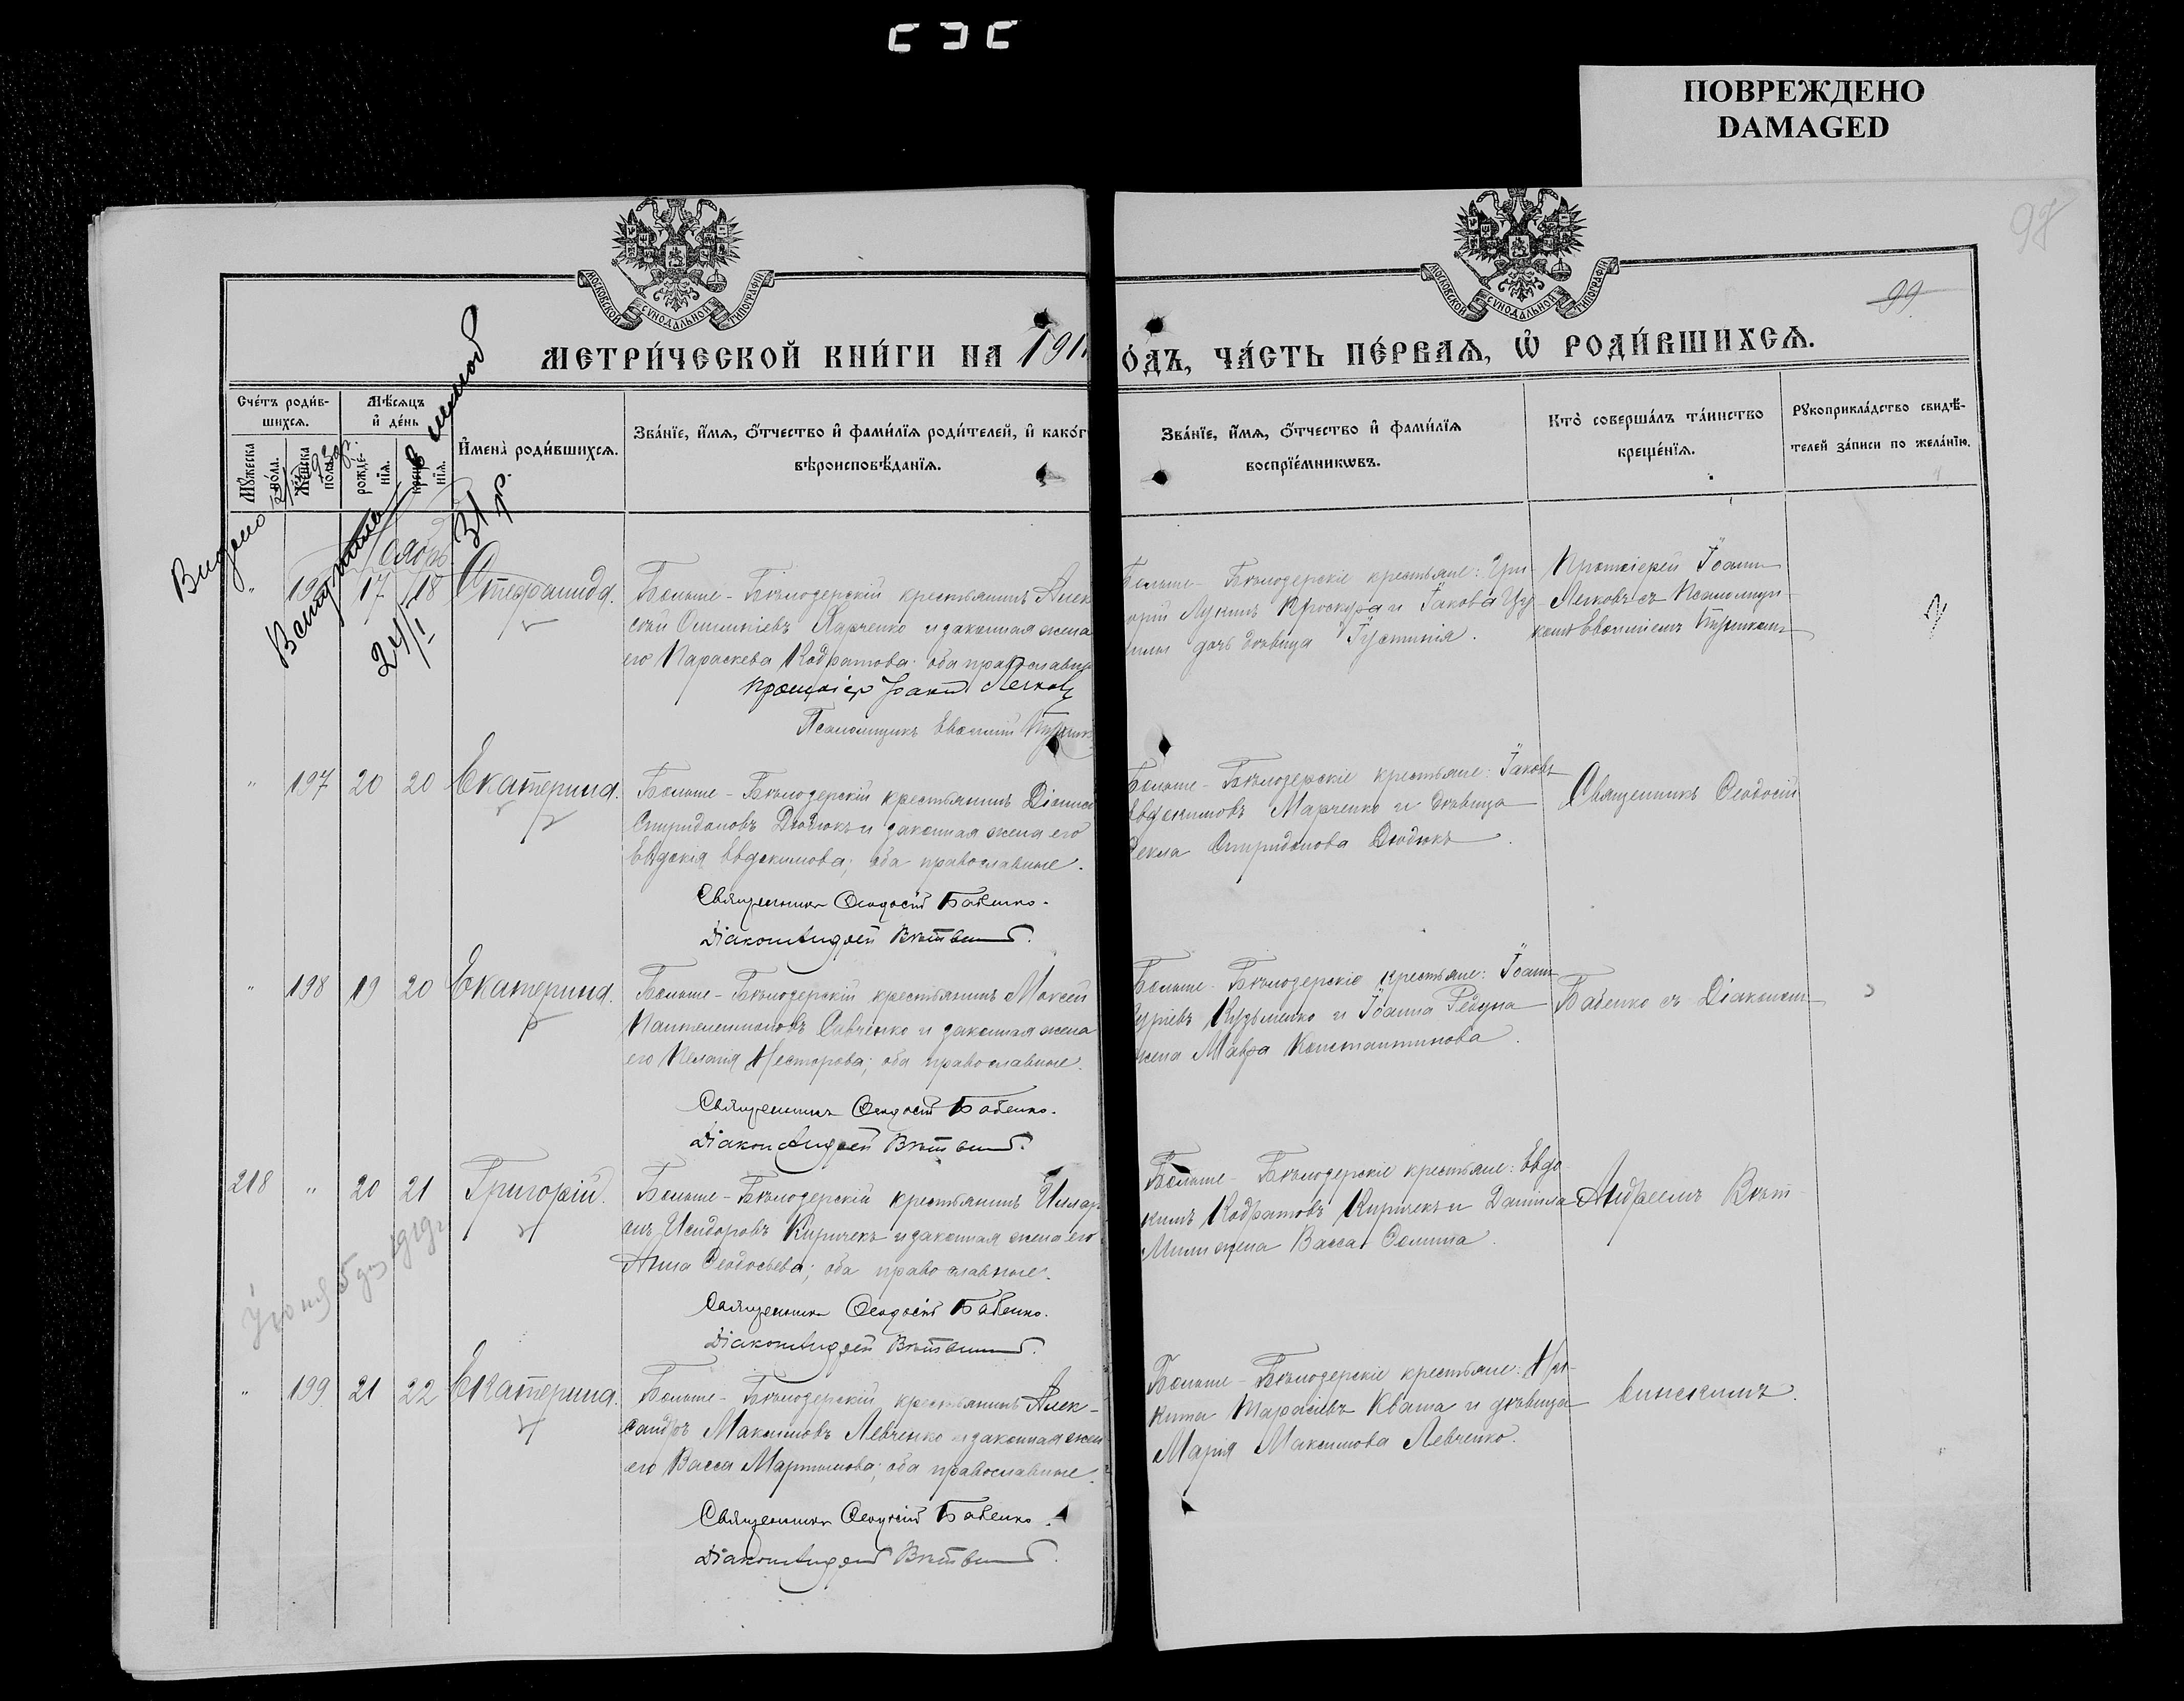 ПОВРЕЖДЕНО
DAMAGED
98
99
МОСКОВСКОЙ СѴНОДАЛЬНОЙ ТИПОГРАФІИ
МОСКОВСКОЙ СѴНОДАЛЬНОЙ ТИПОГРАФІИ
МЕТРИ́ЧЕСКОЙ КНИ́ГИ НА 191
О́ДЪ, ЧА́СТЬ ПЕ́РВАѦ, Ѡ҆ РОДИ́ВШИХСѦ.
Сче́тъ роди́в-
шихсѧ.
Мꙋ́жеска
по́ла.
Же́нска
по́ла.
Мѣ́сѧцъ
и҆ де́нь
рожде́-
нїѧ.
креще́-
нїѧ.
И҆мена̀ роди́вшихсѧ.
Зва́нїе, и҆́мѧ, ѻ҆́тчество и҆ фами́лїѧ роди́телей, и҆ како́г
вѣроисповѣ́данїѧ.
Зва́нїе, и҆́мѧ, ѻ҆́тчество и҆ фами́лїѧ
воспрїе́мникѡвъ.
Кто̀ соверша́лъ та́инство
креще́нїѧ.
Рꙋкоприкла́дство свидѣ́-
телей за́писи по жела́нїю.
Видено
Вступила
24/I
31 р.
Ноябрь
" 196 17 18 Стефанида.
Больше-Бѣлозерскій крестьянинъ Алек
сѣй Харченко и законная жена
его Параскева Кодратова; оба православн
Протоіер Іоаннъ Лечковъ
Псаломщикъ Евѳимій
Больше-Бѣлозерскіе крестьяне: Гри-
орій Лукинъ Проскура и Іакова
дочь дѣвица Іустинія.
Протоіерей Іоаннъ
Лечковъ съ Псаломщи-
комъ Евѳиміемъ
" 197 20 20 Екатерина.
Больше-Бѣлозерскій крестьянинъ Діониси
Спиридоновъ Дюдюкъ и законная жена его
Евдокія Евдокимова; оба православные.
Священникъ Ѳеодосій Бабенко.
Діаконъ Андрей Вѣтвинскій.
Больше-Бѣлозерскіе крестьяне: Іаковъ
Евдокимовъ Марченко и дѣвица
Ѳекла Спиридонова Дюдюкъ.
Священникъ Ѳеодосій
" 198 19 20 Екатерина.
Больше-Бѣлозерскій крестьянинъ Моисей
Пантелеимоновъ Савченко и законная жена
его Пелагія Несторова; оба православные.
Священникъ Ѳеодосій Бабенко.
Діаконъ Андрей Вѣтвинскій.
Больше-Бѣлозерскіе крестьяне: Іоаннъ
Гуріевъ Кузьменко и Іоанна Редуна
жена Мавра Константинова.
Бабенко съ Діакономъ
218 " 20 21 Григорій.
Больше-Бѣлозерскій крестьянинъ Иллар
онъ Исидоровъ Киричекъ и законная жена его
Анна Ѳеодосьева; оба православные.
Священникъ Ѳеодосій Бабенко.
Діаконъ Андрей Вѣтвинскій.
Больше-Бѣлозерскіе крестьяне: Евдо
кимъ Кодратовъ Киричекъ и Даніила
жена Васса Ѳомина.
Андреемъ Вѣт-
" 199 21 22 Екатерина.
Больше-Бѣлозерскій крестьянинъ Алек-
сандръ Максимовъ Левченко и законная жен
его Васса Мартынова; оба православные.
Священникъ Ѳеодосій Бабенко.
Діаконъ Андрей Вѣтвинскій.
Больше-Бѣлозерскіе крестьяне: Ни-
кита Тарасіевъ Кваша и дѣвица
Марія Максимова Левченко.
винскимъ.